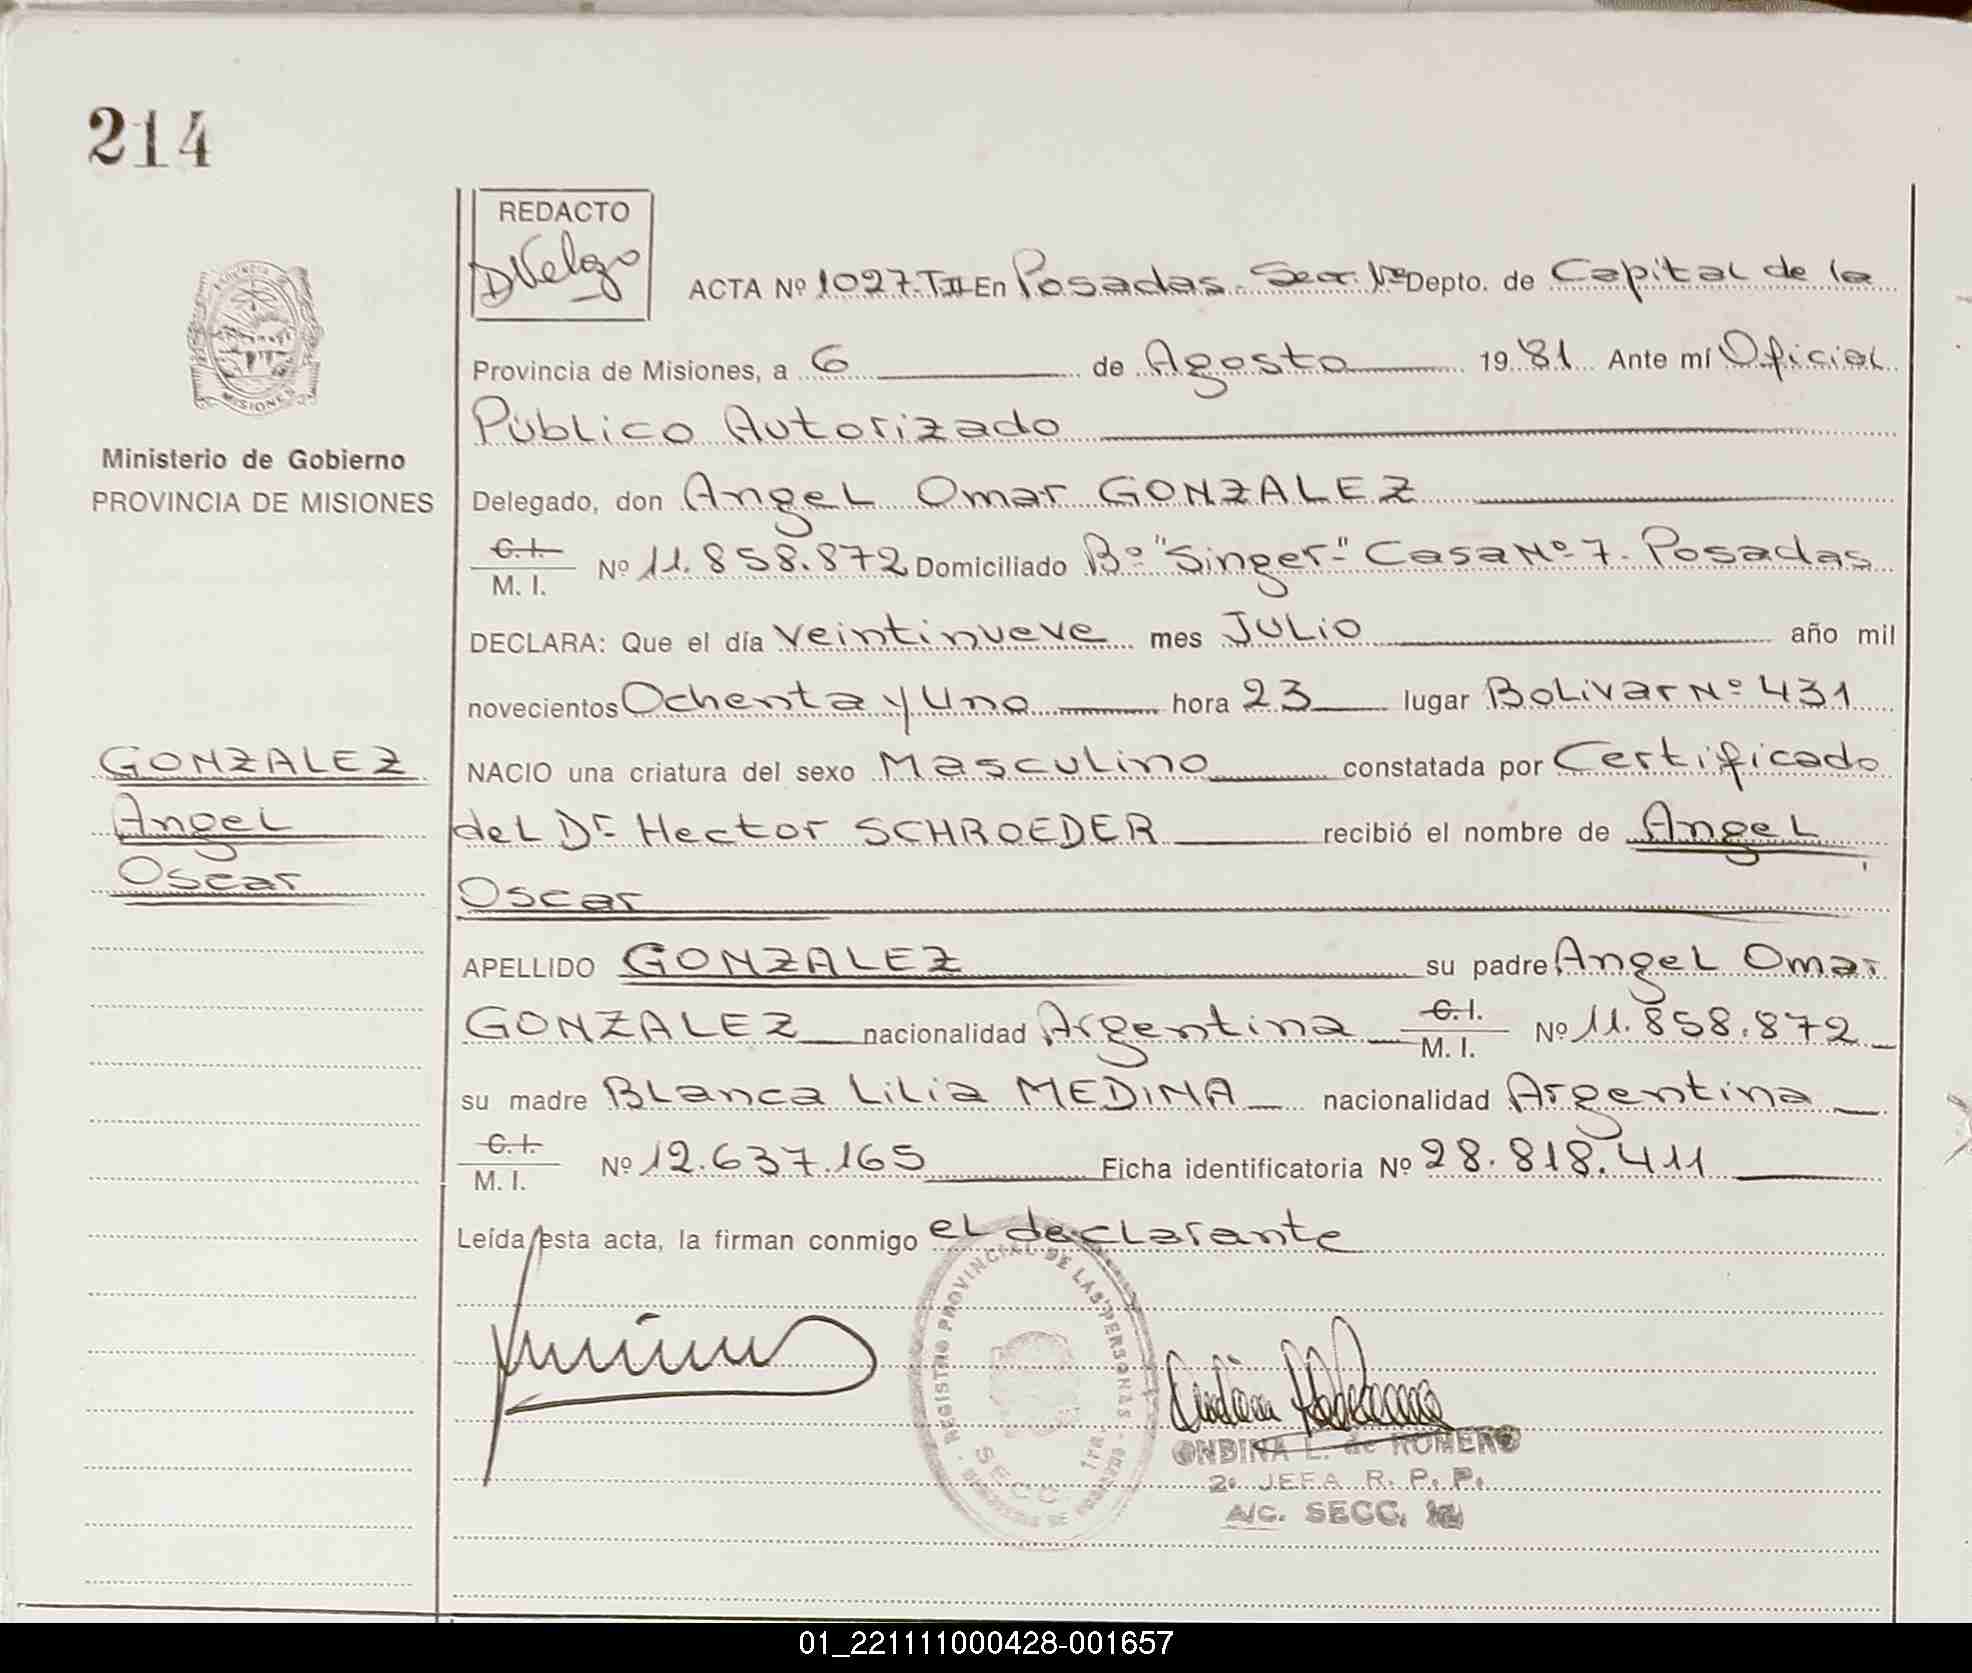 214
REDACTO
DVelozo
ACTA Nº 1027.TII En Posadas. Secc. 1ra Depto. de Capital de la
Provincia de Misiones, a 6 de Agosto 1981 Ante mí Oficial
Público Autorizado
Ministerio de Gobierno
PROVINCIA DE MISIONES
Delegado, don Angel Omar GONZALEZ
C.I.
M. I. Nº 11.858.872 Domiciliado Bº "Singer" Casa Nº 7. Posadas
DECLARA: Que el día veintinueve mes JULIO año mil
novecientos Ochenta y Uno hora 23 lugar Bolivar Nº 431
GONZALEZ
Angel
Oscar
NACIO una criatura del sexo Masculino constatada por Certificado
del Dr Hector SCHROEDER recibió el nombre de Angel
Oscar
APELLIDO GONZALEZ su padre Angel Omar
GONZALEZ nacionalidad Argentina C.I. M. I. Nº 11.858.872
su madre Blanca Lilia MEDINA nacionalidad Argentina
C.I.
M. I. Nº 12.637.165 Ficha identificatoria Nº 28.818.411
Leída esta acta, la firman conmigo el declarante
REGISTRO PROVINCIAL DE LAS PERSONAS
SECC. 1ra.
ONDINA L. de ROMERO
2º JEFA R. P. P.
A/C. SECC.
MISIONES
01_221111000428-001657